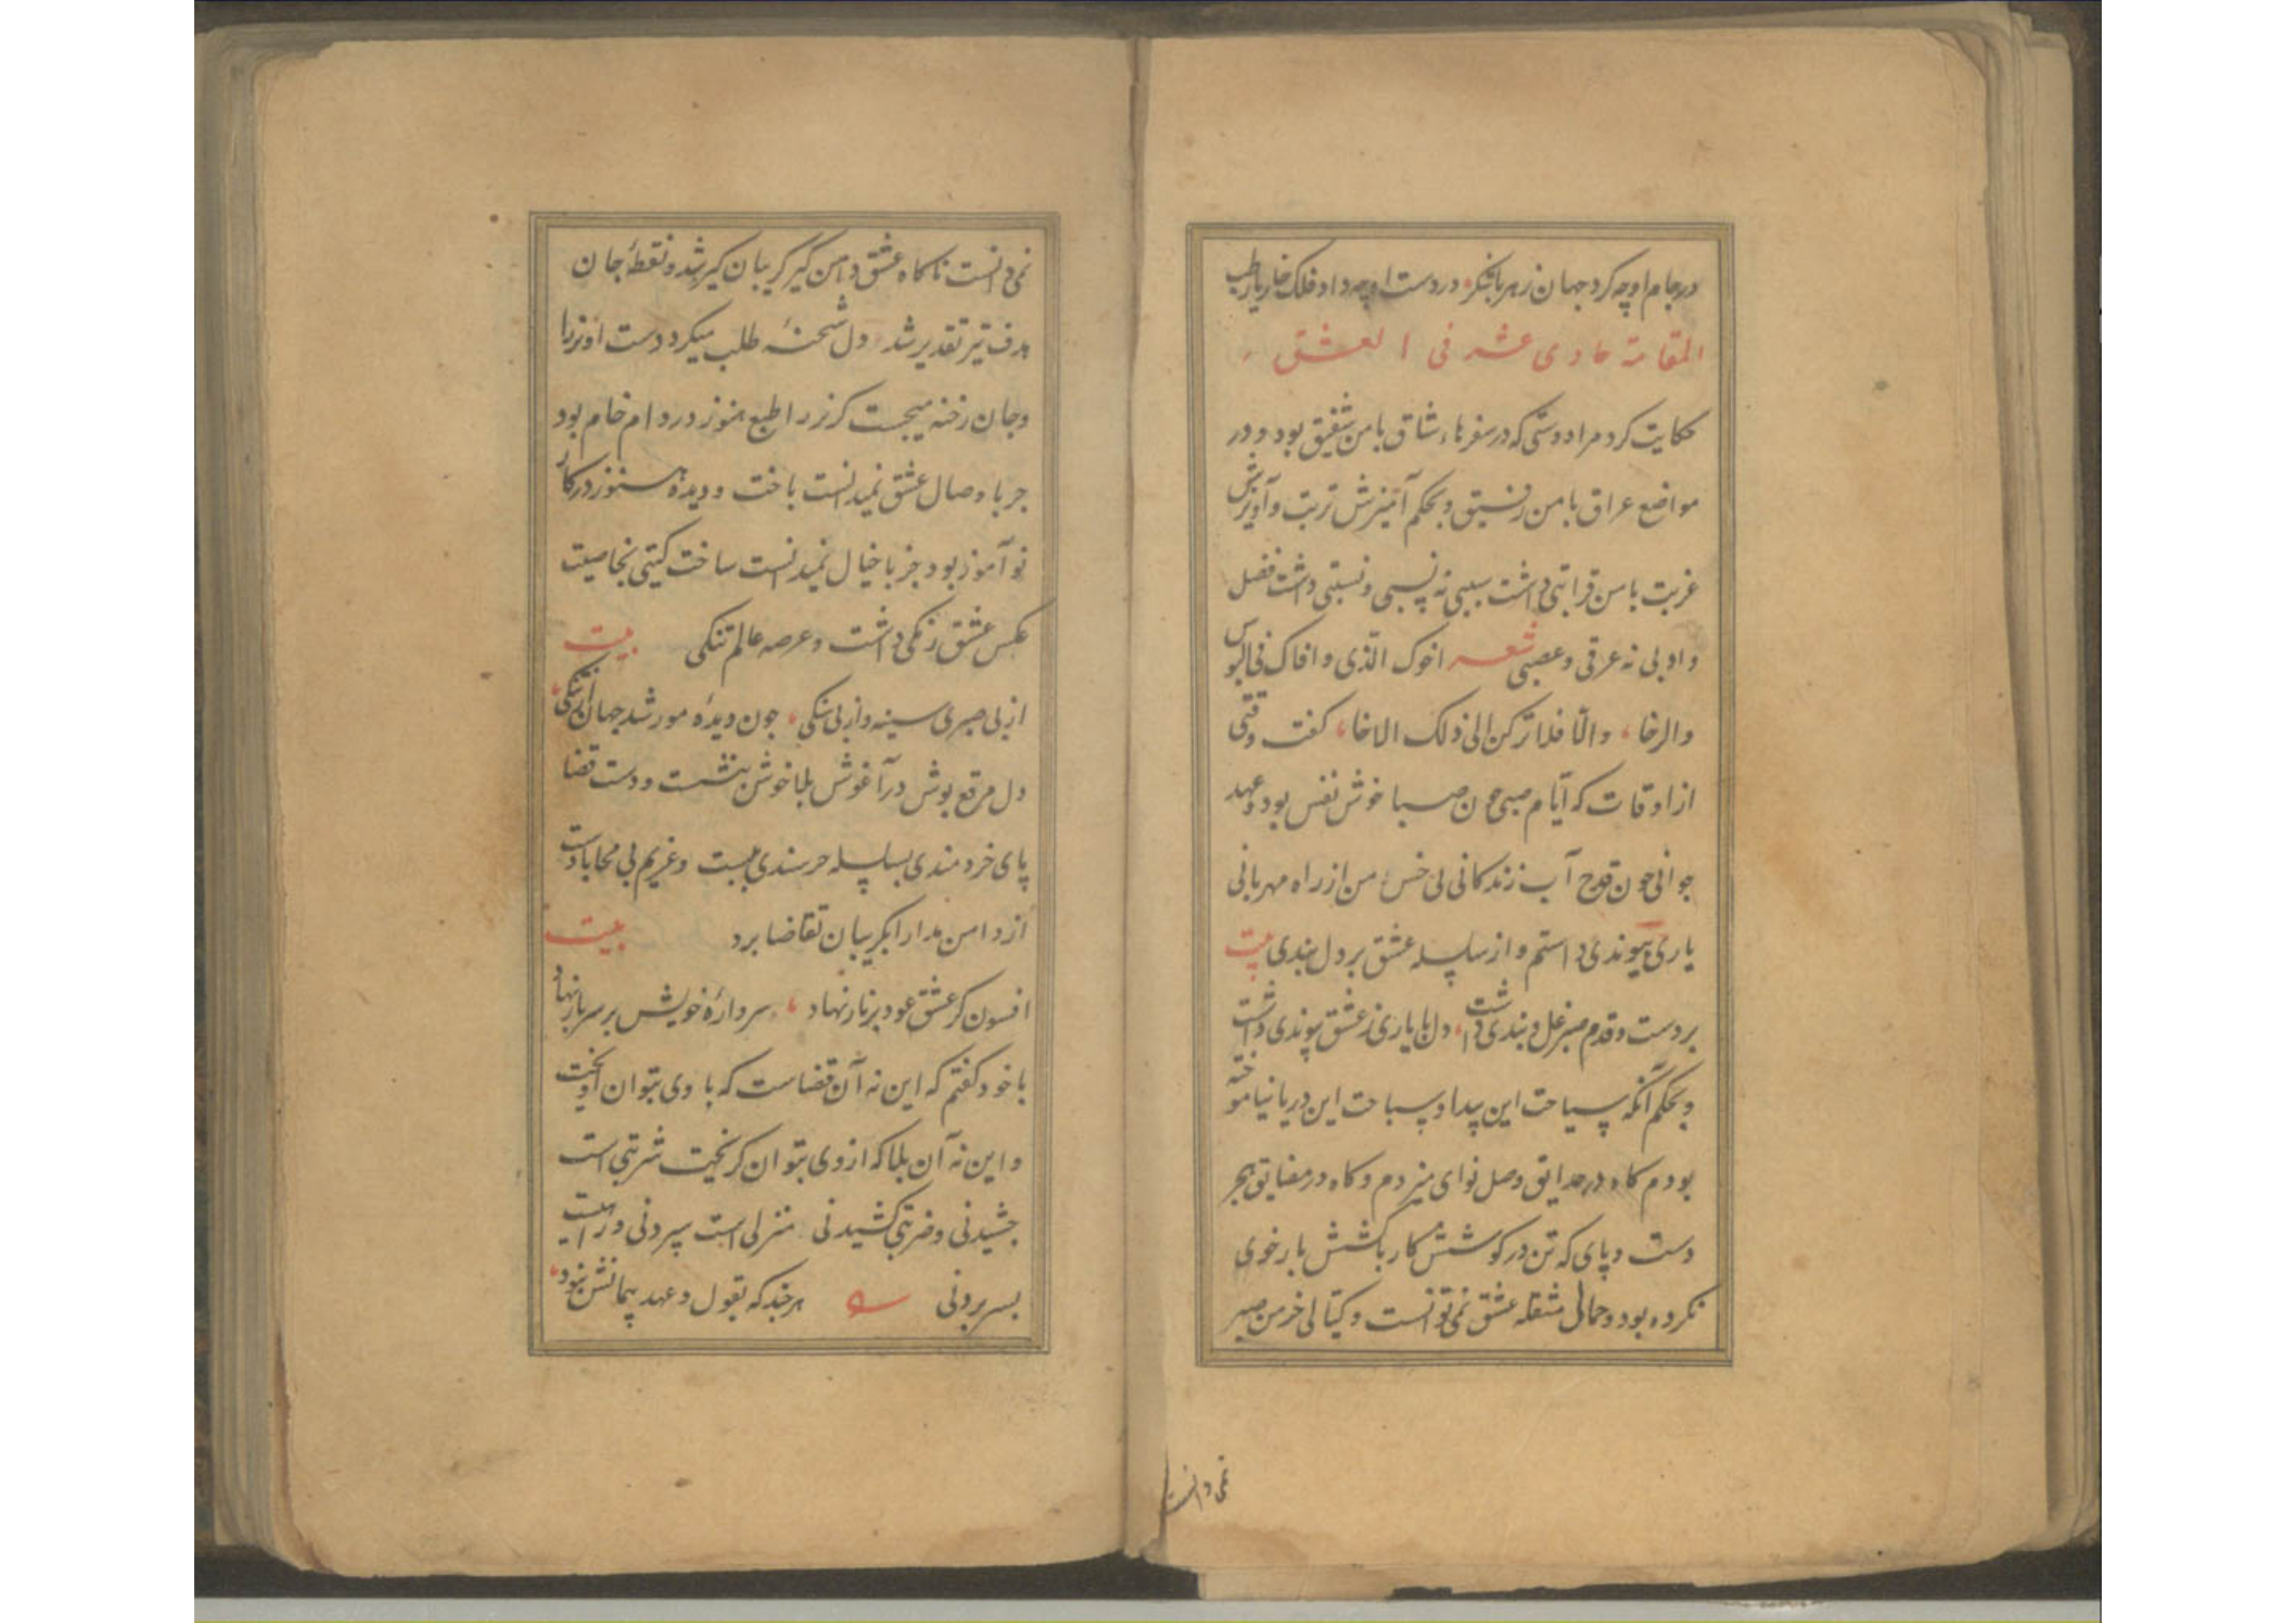 در جام او چه کرد جهان زهر یا شکر در دست او چه داد فلک خار یا رطب
المقامة حادی عشر فی العشق
حکایت کرد مرا دوستی که در سفرهاء شاق با من شفیق بود و در
مواضع عراق با من رفیق و بحکم آمیزش تربت و آویزش
غربت با من قرابتی داشت سببی نه نسبی و نسبتی داشت فضل
و ادبی نه عرقی و عصبی شعر اخوک الذی وافاک فی البوس
والرخا والّا فلا ترکن الی ذلک الاخا کفت وقتی
از اوقات که ایّام صبی چون صبا خوش نفس بود و عهد
جوانی چون قدح آب زندکانی بی خس من از راه مهربانی
یاری پیوندی داستم و از سلسله عشق بر دل بندی بیت
بر دست و قدم صبر غل و بندی داشت دل با یاری ز عشق پیوندی داشت
و بحکم آنکه سیاحت این بیدا و سباحت این دریا نیاموخته
بودم کاه در حدایق وصل نوای میزدم و کاه در مضایق هجر
دست و پای که تن در کوشش کار باکشش بار خوی
نکرده بود و حمالی مثقله عشق نمی توانست و کیالی خرمن صبر
نمی دانست
نمی دانست ناکاه عشق دامن کیر کریبان کیر شد و نقطهٔ جان
هدف تیر تقدیر شد دل شحنهٔ طلب میکرد دست اندازرا
و جان رخنه میجست کریز را طبع هنوز در دام خام بود
جز با وصال عشق نمیدانست باخت و دیده هنوز در کار
نو آموز بود جز با خیال نمیدانست ساخت کیتی بخاصیت
عکس عشق رنکی داشت و عرصه عالم تنکی بیت
از بی صبری سینه و از بی سنکی چون دیدهٔ مور شد جهان از تنکی
دل مرقع پوش در آغوش بلا خوش بنشست و دست قضا
پای خردمندی بسلسله خرسندی ببست و غریم بی محابا دست
از دامن مدارا بکریبان تقاضا برد بیت
افسون کر عشق عود بر نار نهاد سر دارهٔ خویش بر سر بار نهاد
با خود کفتم که این نه آن قضاست که با وی بتوان آویخت
و این نه آن بلا که از وی بتوان کریخت شربتی است
چشیدنی و ضربتی کشیدنی منزلی است سپردنی و راهیست
بسر بردنی هر چند که بقول و عهد پیمانش نبود